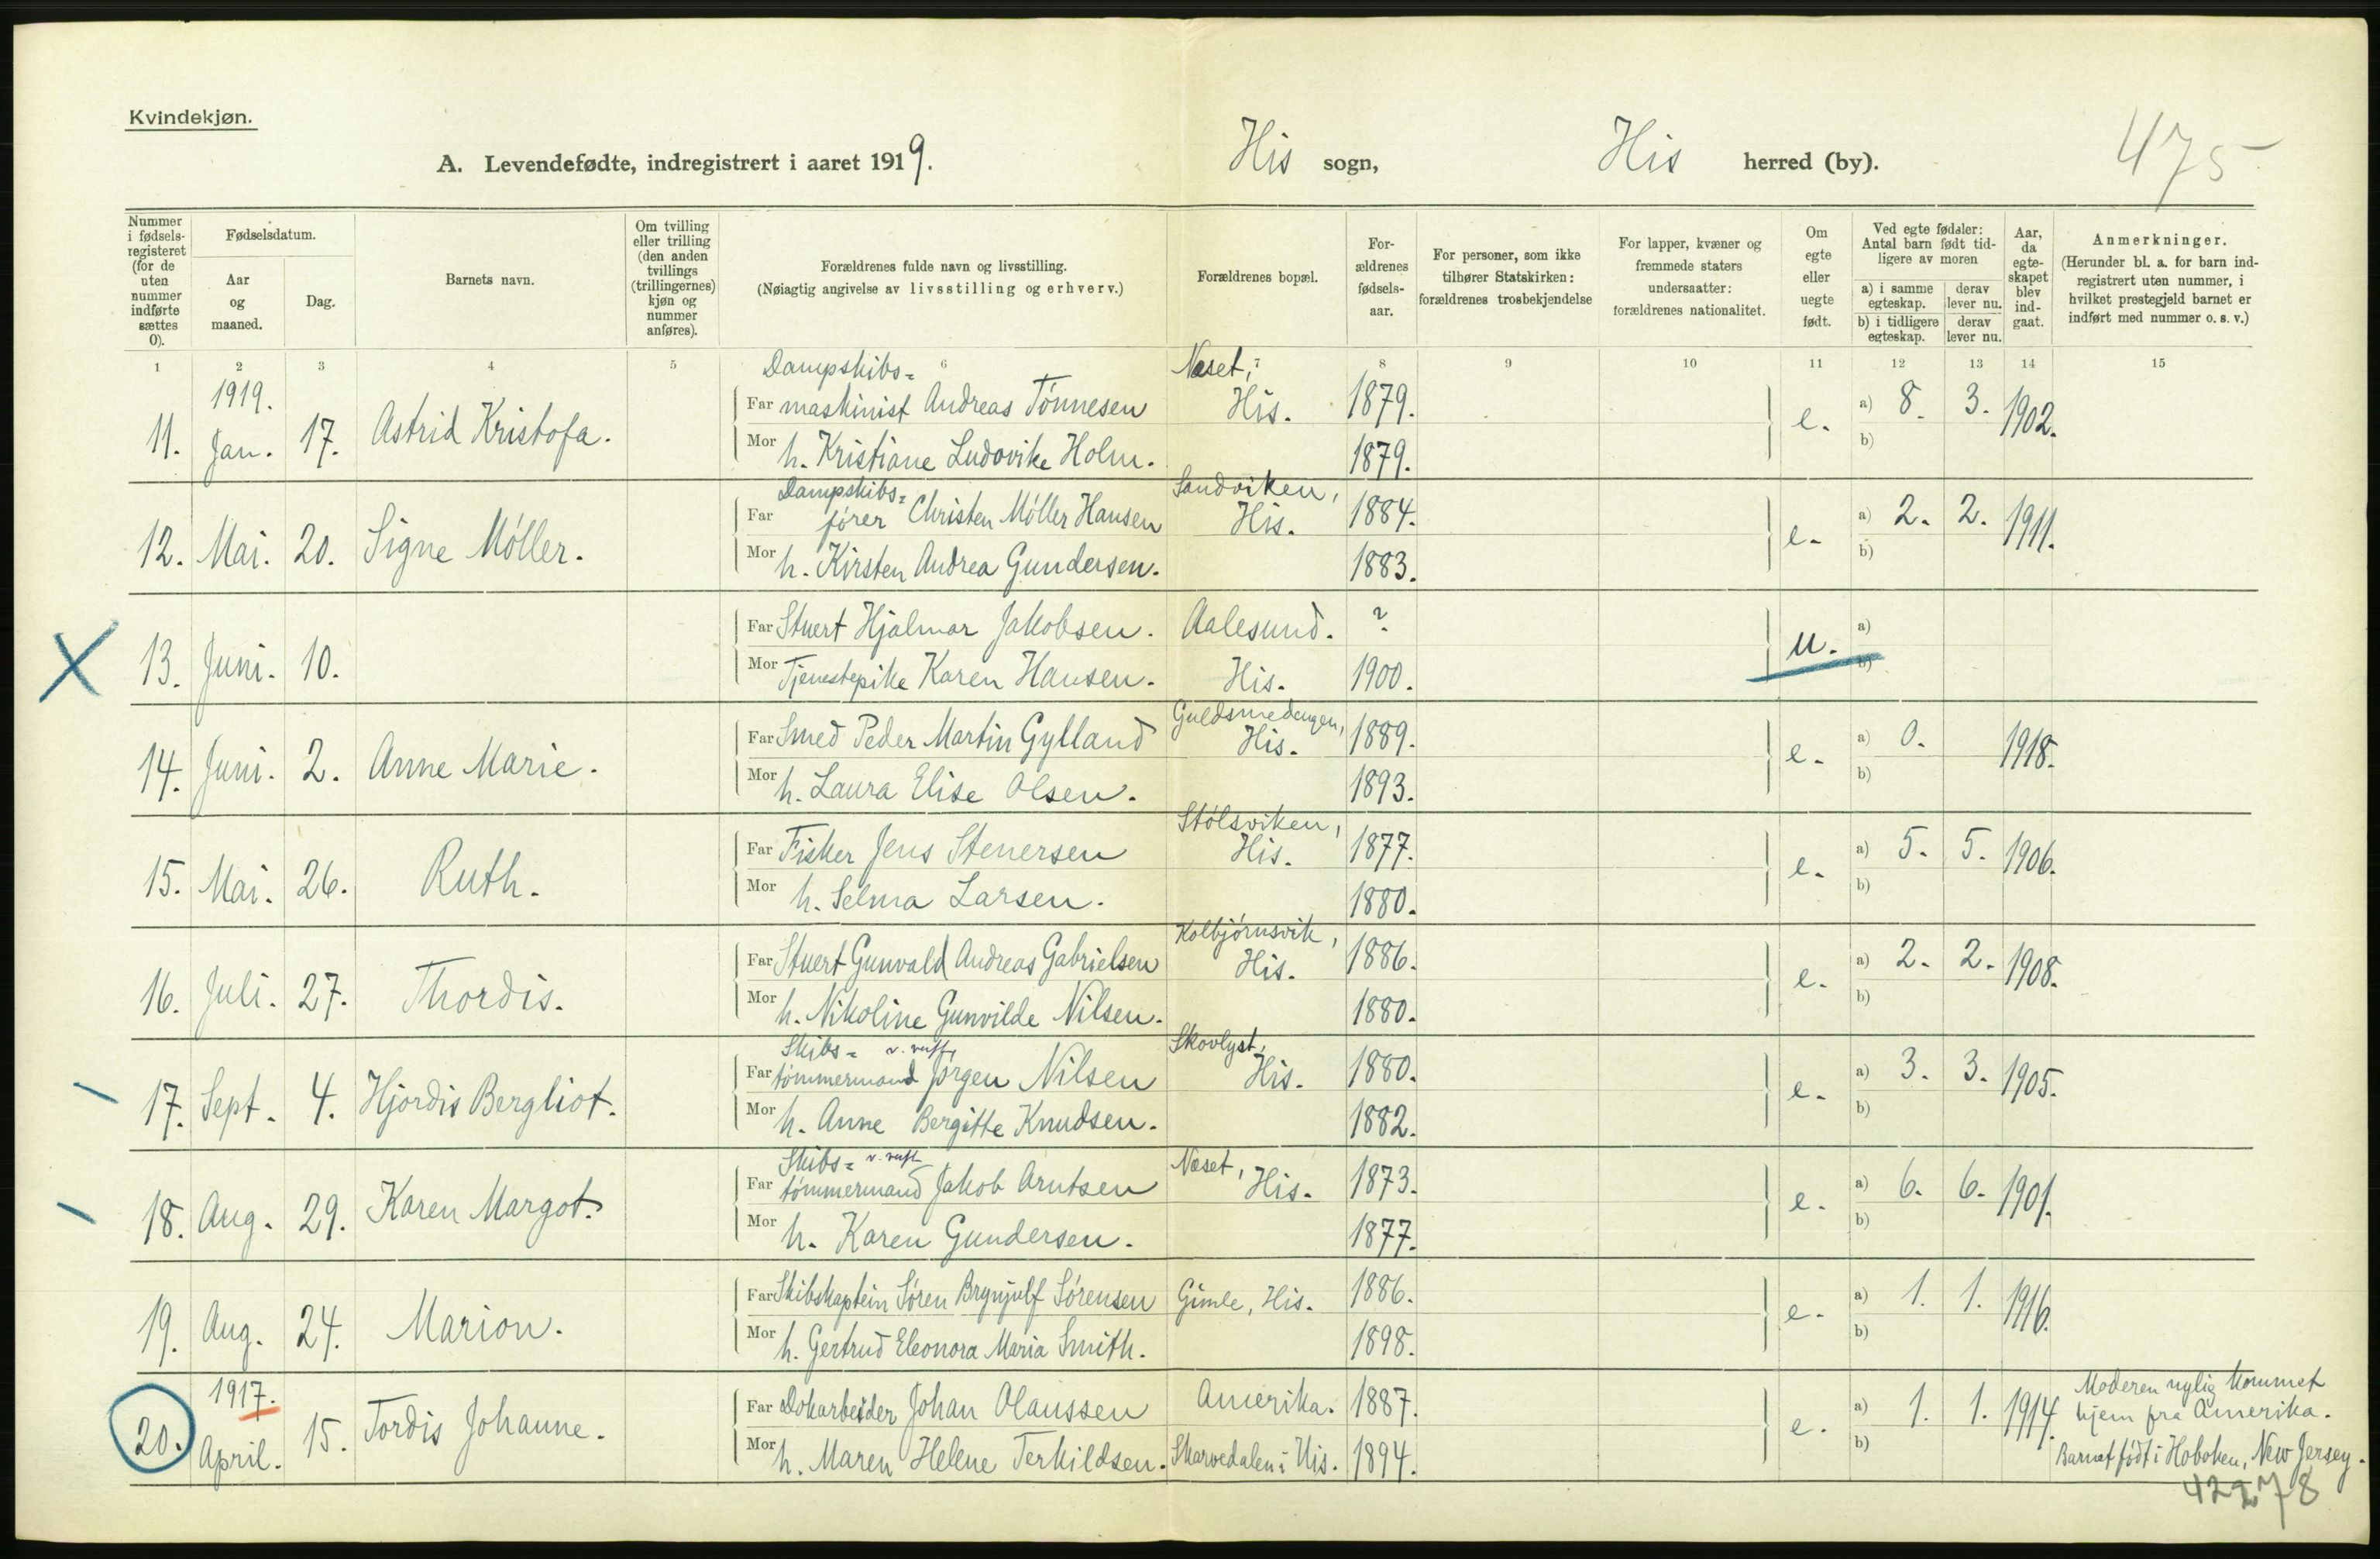 Kvindekjøn.
A. Levendefødte, indregistrert i aaret 1919.
His sogn, His herred (by).
475
Nummer i fødsels-registeret (for de uten nummer indførte sættes 0).
Fødselsdatum.
Aar og maaned.
Dag.
Barnets navn.
Om tvilling eller trilling (den anden tvillings (trillingernes) kjøn og nummer anføres).
Forældrenes fulde navn og livsstilling.
(Nøiagtig angivelse av livsstilling og erhverv.)
Forældrenes bopæl.
For-ældrenes fødsels-aar.
For personer, som ikke tilhører Statskirken: forældrenes trosbekjendelse
For lapper, kvæner og fremmede staters undersaatter: forældrenes nationalitet.
Om egte eller uegte født.
Ved egte fødsler: Antal barn født tid-ligere av moren
a) i samme egteskap. derav lever nu.
b) i tidligere egteskap. derav lever nu.
Aar, da egte-skapet blev ind-gaat.
Anmerkninger.
(Herunder bl. a. for barn ind-registrert uten nummer, i hvilket prestegjeld barnet er indført med nummer o. s. v.)
1 2 3 4 5 6 7 8 9 10 11 12 13 14 15
1919. Dampskibs= Næset,
11. Jan. 17. Astrid Kristofa. Far maskinist Andreas Tönnesen His. 1879. e. a) 8. 3. 1902.
Mor h. Kristiane Ludovike Holm. 1879. b)
Dampskibs= Sandviken,
12. Mai. 20. Signe Möller. Far förer Christen Möller Hansen His. 1884. e. a) 2. 2. 1911.
Mor h. Kirsten Andrea Gundersen. 1883. b)
X 13. Juni. 10. Far Stuert Hjalmar Jakobsen. Aalesund. ? u. a)
Mor Tjenestepike Karen Hansen. His. 1900. b)
Guldsmedengen,
14. Juni. 2. Anne Marie. Far Smed Peder Martin Gylland His. 1889. e. a) 0. 1918.
Mor h. Laura Elise Olsen. 1893. b)
Stölsviken,
15. Mai. 26. Ruth. Far Fisker Jens Stenersen His. 1877. e. a) 5. 5. 1906.
Mor h. Selma Larsen. 1880. b)
Kolbjörnsvik,
16. Juli. 27. Thordis. Far Stuert Gunvald Andreas Gabrielsen His. 1886. e. a) 2. 2. 1908.
Mor h. Nikoline Gunvilde Nilsen. 1880. b)
Skibs= Skovlyst,
17. Sept. 4. Hjordis Bergliot. Far tömmermand Jörgen Nilsen His. 1880. e. a) 3. 3. 1905.
Mor h. Anne Bergitte Knudsen. 1882. b)
Skibs= Næset,
18. Aug. 29. Karen Margot. Far tömmermand Jakob Arntsen His. 1873. e. a) 6. 6. 1901.
Mor h. Karen Gundersen. 1877. b)
19. Aug. 24. Marion. Far Skibskaptein Sören Brynjulf Sörensen Gimle, His. 1886. e. a) 1. 1. 1916.
Mor h. Gertrud Eleonora Maria Smith. 1898. b)
1917.
20. April. 15. Tordis Johanne. Far Dokarbeider Johan Olaussen Amerika. 1887. e. a) 1. 1. 1914. Moderen nylig kommet
hjem fra Amerika.
Mor h. Maren Helene Terkildsen. Skarvedalen i His. 1894. b) Barnet födt i Hoboken, New Jersey.
42278